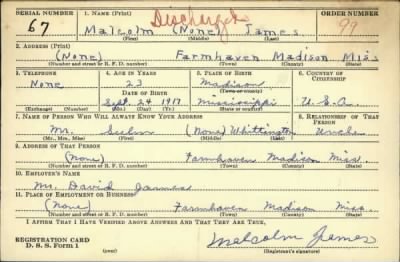 SERIAL NUMBER 1. NAME (Print) Discharged ORDER NUMBER
67 Malcolm (None) James 99
(First) (Middle) (Last)
2. ADDRESS (Print)
(None) Farmhaven Madison Miss
(Number and street or R. F. D. number) (Town) (County) (State)
3. TELEPHONE 4. AGE IN YEARS 5. PLACE OF BIRTH 6. COUNTRY OF CITIZENSHIP
None 23 Madison
DATE OF BIRTH (Town or county)
Sept. 24 1917 Mississippi U.S.A.
(Exchange) (Number) (Mo.) (Day) (Yr.) (State or country)
7. NAME OF PERSON WHO WILL ALWAYS KNOW YOUR ADDRESS 8. RELATIONSHIP OF THAT PERSON
Mr. (None) Whittington Uncle
(Mr., Mrs., Miss) (First) (Middle) (Last)
9. ADDRESS OF THAT PERSON
(None) Farmhaven Madison Miss.
(Number and street or R. F. D. number) (Town) (County) (State)
10. EMPLOYER'S NAME
Mr. David James
11. PLACE OF EMPLOYMENT OR BUSINESS
(None) Farmhaven Madison Miss.
(Number and street or R. F. D. number) (Town) (County) (State)
I AFFIRM THAT I HAVE VERIFIED ABOVE ANSWERS AND THAT THEY ARE TRUE.
REGISTRATION CARD Malcolm James
D. S. S. Form 1 (over) (Registrant's signature)